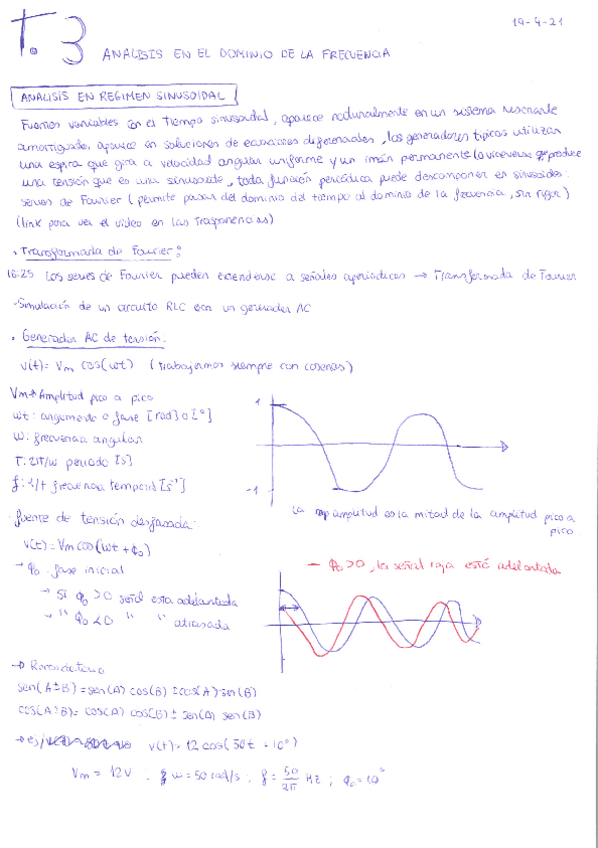 T. 3
19-4-21
ANALISIS EN EL DOMINIO DE LA FRECUENCIA
ANALISIS EN REGIMEN SINUSOIDAL
Fuentes variables con el tiempo sinusoidal, aparece naturalmente en un sistema resonante
amortiguado, aparece en soluciones de ecuaciones diferenciales, los generadores típicos utilizan
una espira que gira a velocidad angular uniforme y un imán permanente (o viceversa) produce
una tensión que es una sinusoide, toda función periódica puede descomponer en sinusoides:
series de Fourier (permite pasar del dominio del tiempo al dominio de la frecuencia, sin rigor)
(link para ver el video en las trasparencias)
· Transformada de Fourier:
16:25 Las series de Fourier pueden extenderse a señales aperiódicas → Transformada de Fourier
-Simulación de un circuito RLC con un generador AC
· Generador AC de tensión:
v(t)= Vm cos(wt) (trabajamos siempre con cosenos)
Vm→Amplitud pico a pico
wt: argumento o fase [rad] o [°]
w: frecuencia angular
T: 2π/w periodo [s]
f: 1/t frecuencia temporal [s⁻¹]
1
-1
La amplitud es la mitad de la amplitud pico a
pico
· fuente de tensión desfasada:
v(t)=Vm cos(wt+φ₀)
→ φ₀: fase inicial
→ Si φ₀ >0 señal esta adelantada
→ " φ₀ <0 " " atrasada
— φ₀>0, la señal roja está adelantada
→ Recordatorio
sen(A±B)=sen(A) cos(B) ± cos(A) sen(B)
cos(A±B)= cos(A) cos(B) ± sen(A) sen(B)
→ ej/ v(t)= 12 cos(50t + 10°)
Vm = 12V ; w=50 rad/s ; f= 50/2π Hz ; φ₀=10°